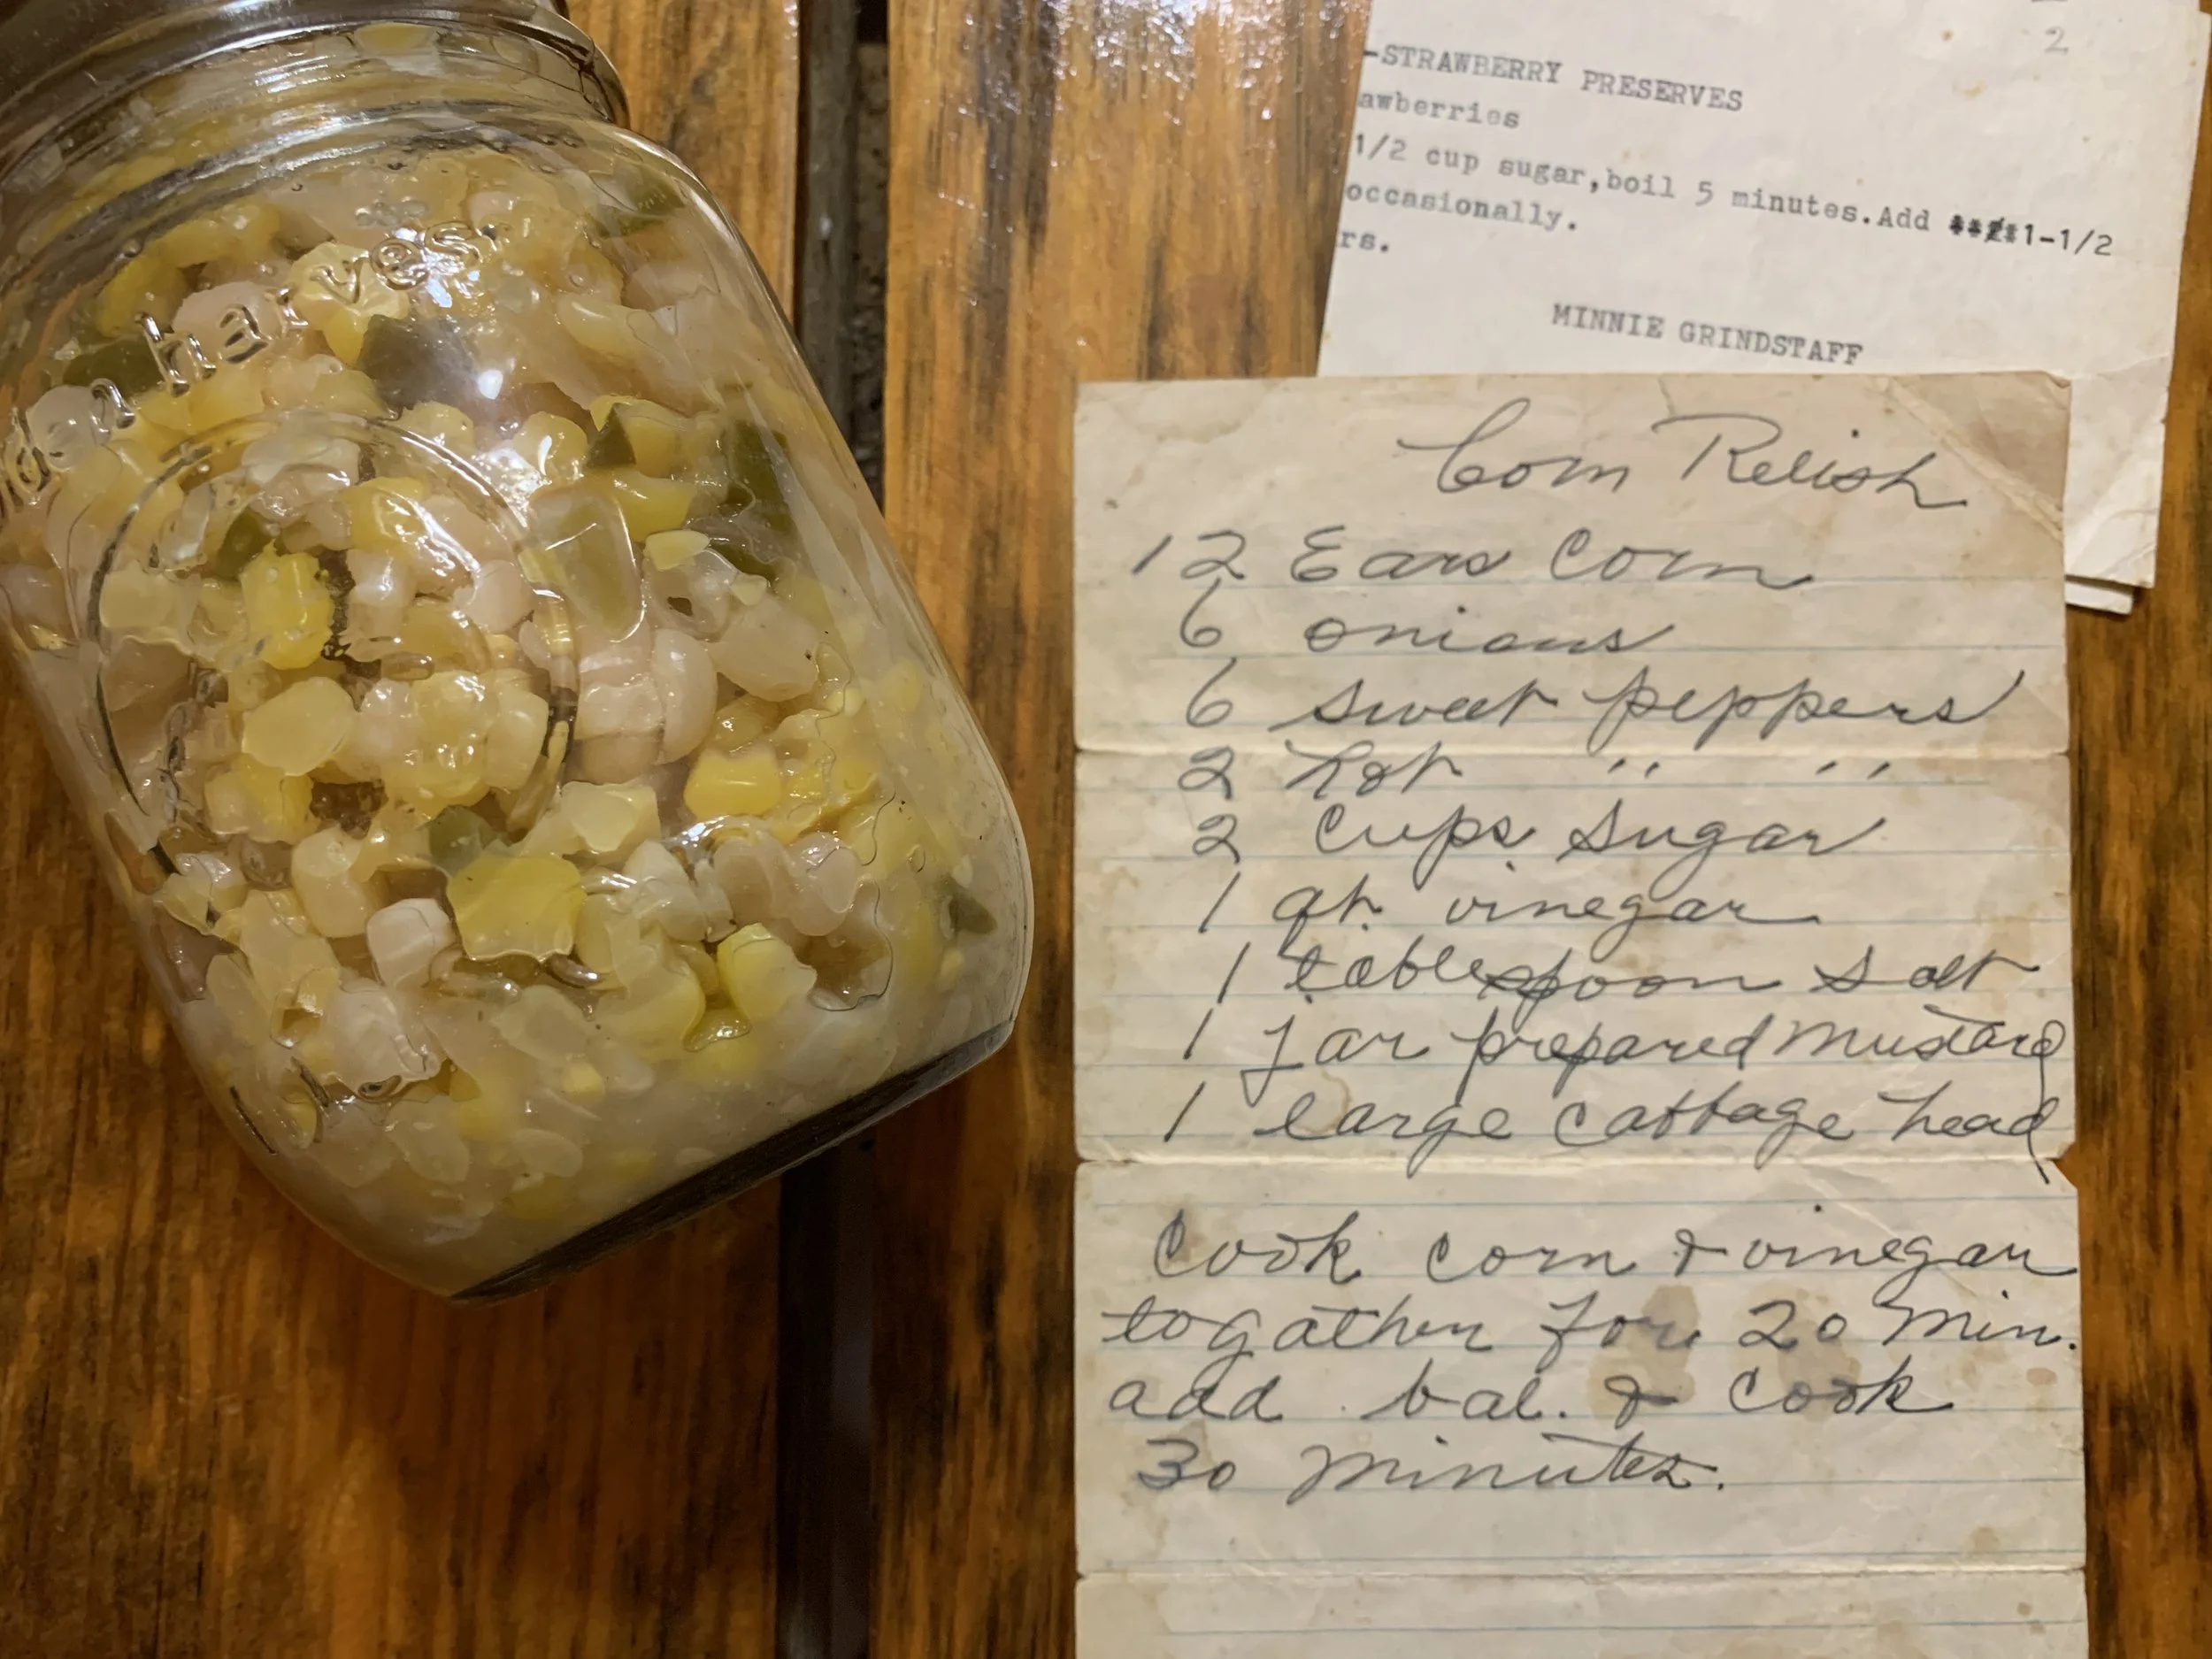 den harvest
2
-STRAWBERRY PRESERVES
awberries
1/2 cup sugar,boil 5 minutes.Add 1-1/2
occasionally.
rs.
MINNIE GRINDSTAFF
Corn Relish
12 Ears Corn
6 onions
6 sweet peppers
2 hot " "
2 cups sugar
1 qt. vinegar
1 tablespoon salt
1 jar prepared mustard
1 large cabbage head
Cook corn & vinegar
togather for 20 min.
add bal. & cook
30 minutes.